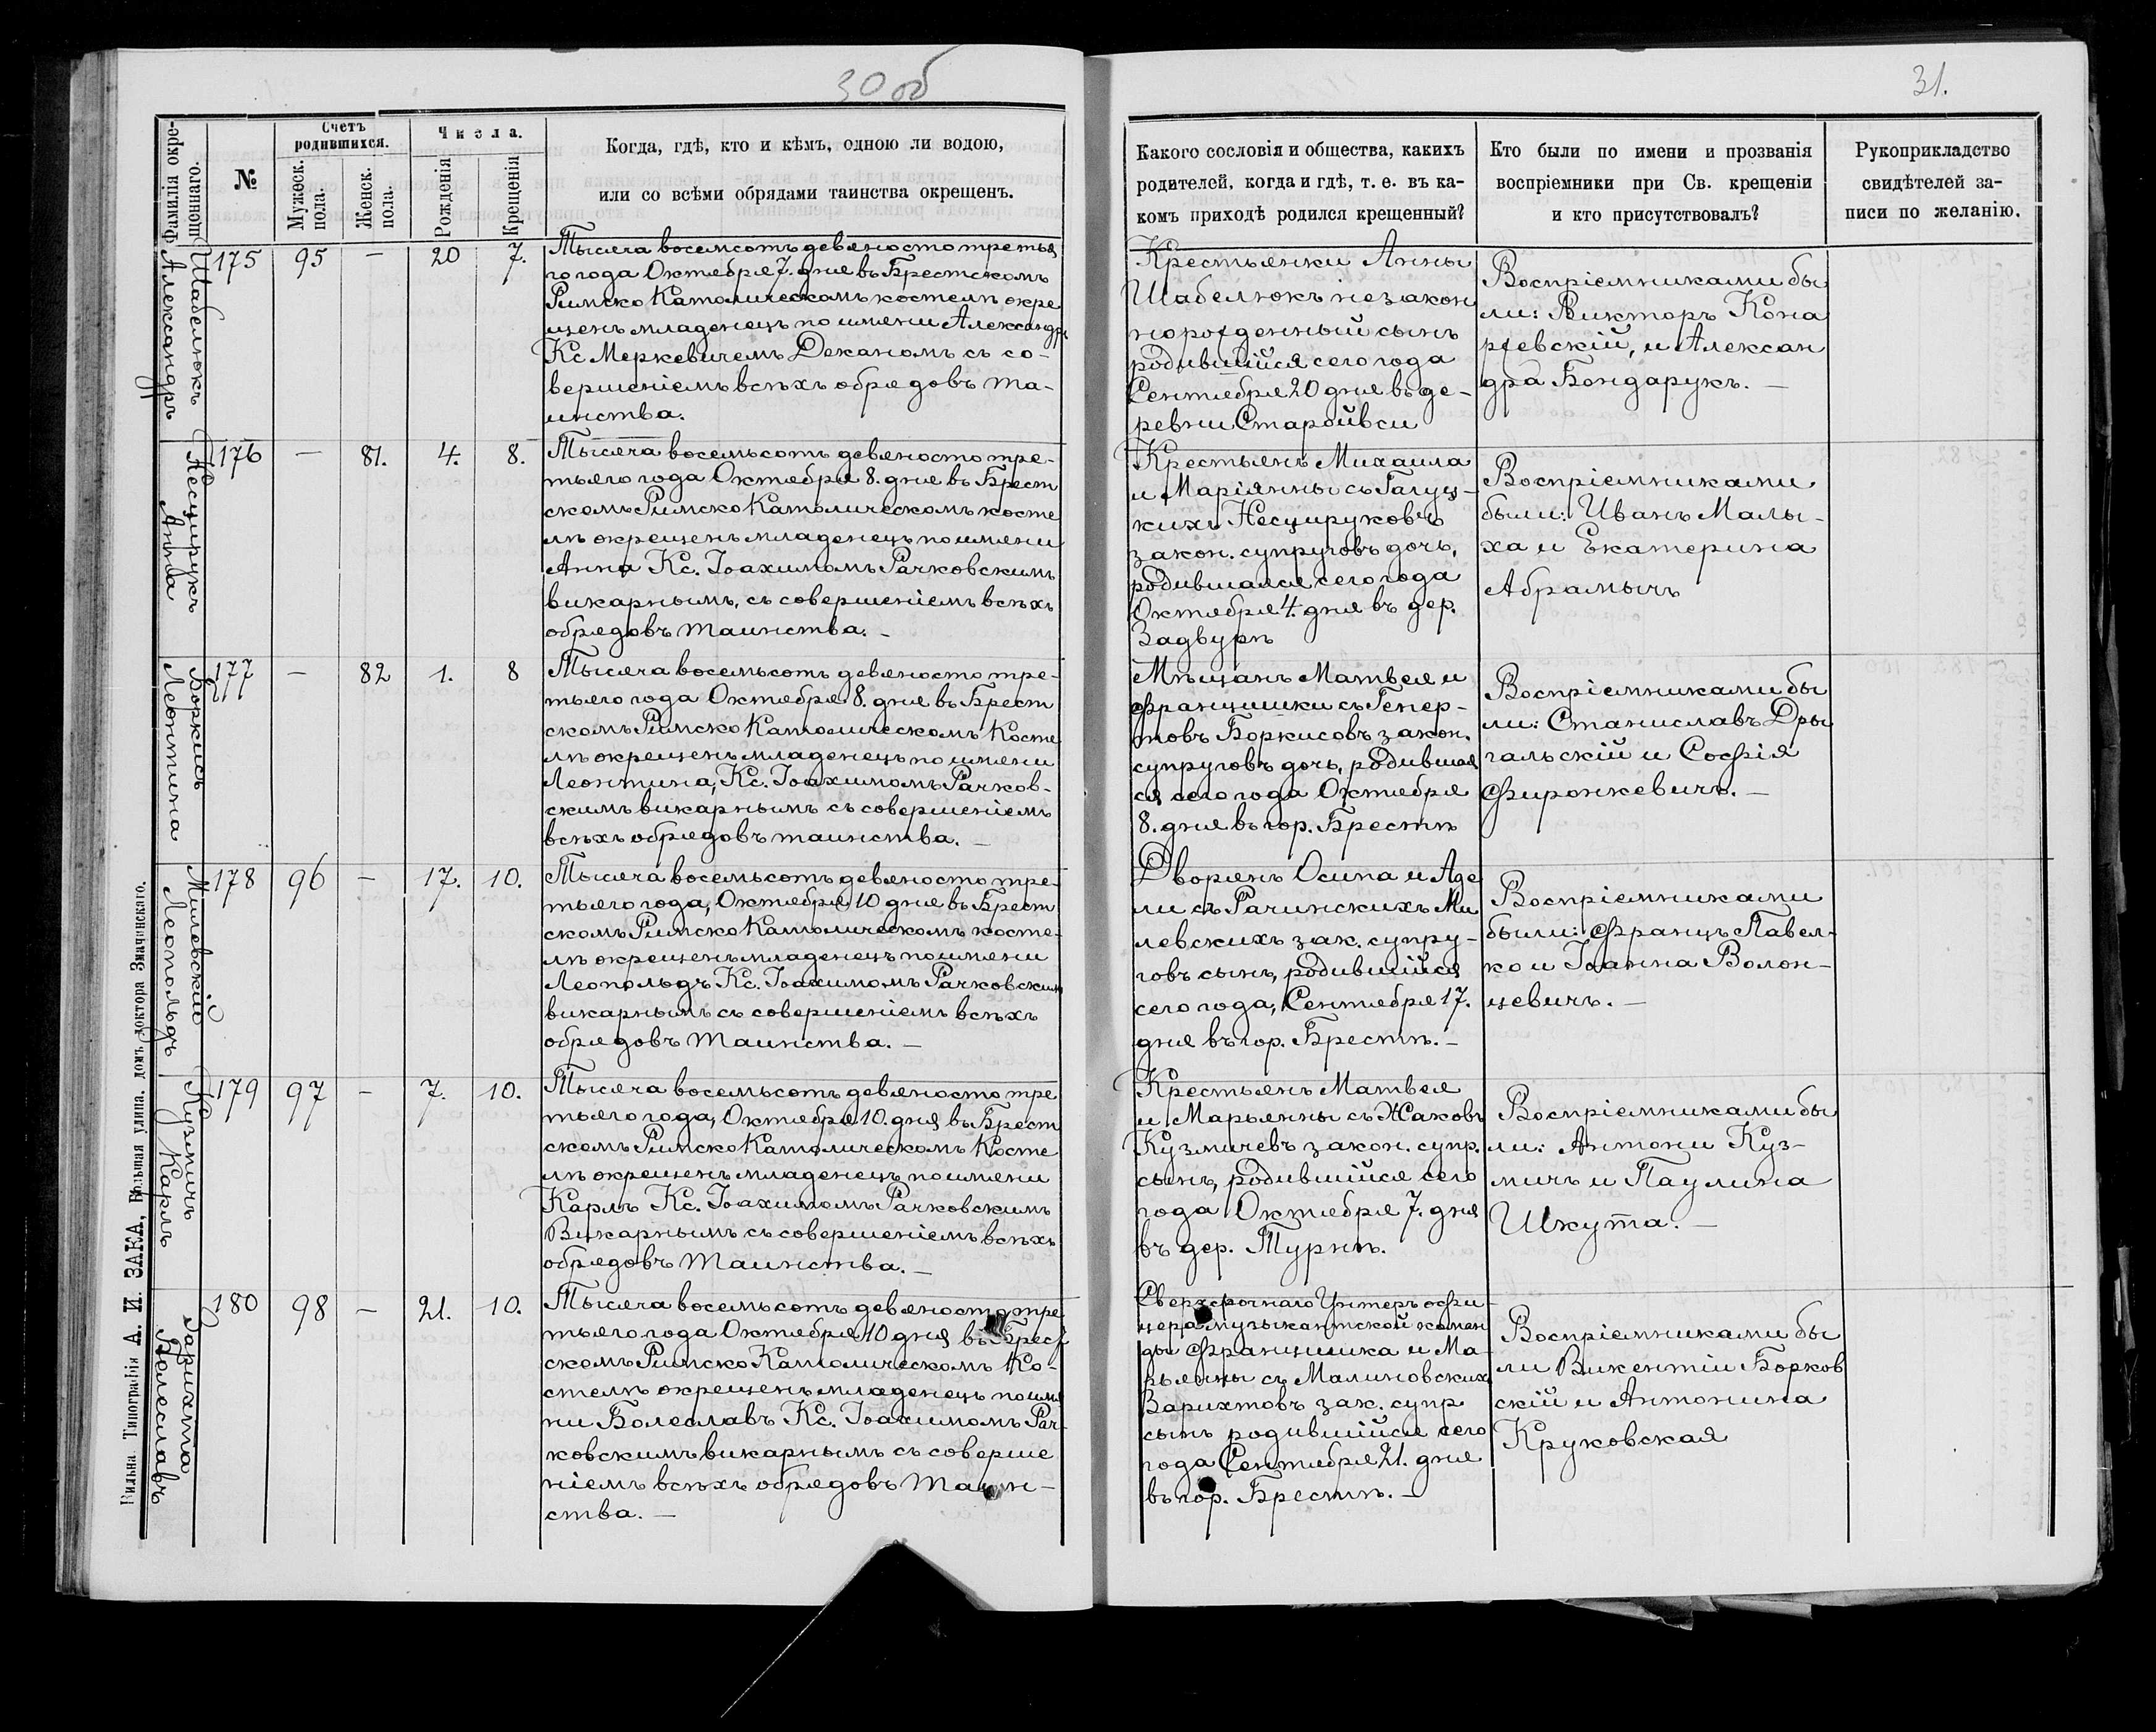 30 об
31.
Фамилія окре-
щеннаго.
№
Счетъ
родившихся.
Мужеск.
пола.
Женск.
пола.
Числа.
Рожденія
Крещенія
Когда, гдѣ, кто и кѣмъ, одною ли водою,
или со всѣми обрядами таинства окрещенъ.
Какого сословія и общества, какихъ
родителей, когда и гдѣ, т. е. въ ка-
комъ приходѣ родился крещенный?
Кто были по имени и прозванія
воспріемники при Св. крещеніи
и кто присутствовалъ?
Рукоприкладство
свидѣтелей за-
писи по желанію.
Шабелюкъ
Александръ
175 95 — 20 7.
Тысяча восемсотъ девяносто третья
го года Октября 7. дня въ Брестскомъ
Римско Католическомъ костелѣ окре
щенъ младенецъ по имени Александръ
Кс Меркевичемъ Деканомъ съ со-
вершеніемъ всѣхъ обрядовъ та-
инства.
Крестьянки Анны
Шабелюкъ незакон
норожденный сынъ
родившійся сего года
Сентября 20 дня въ де-
ревни Старойвси
Воспріемниками бы
ли: Викторъ Кона
ржевскій, и Алексан
дра Бондарукъ. —
Несцирукъ
Анна
176 — 81. 4. 8.
Тысяча восемьсотъ девяносто тре-
тьяго года Октября 8. дня въ Брест
скомъ Римско Католическомъ косте
лѣ окрещенъ младенецъ по имени
Анна Кс. Іоахимомъ Рачковскимъ
викарнымъ, съ совершеніемъ всѣхъ
обрядовъ таинства. —
Крестьянъ Михаила
и Маріянны съ Галуц-
кихъ Несцируковъ
закон. супруговъ дочь,
родившаяся сего года
Октября 4. дня въ дер.
Задвурѣ
Воспріемниками
были: Иванъ Малы-
ха и Екатерина
Абрамычъ
Боркисъ
Леонтина
177 — 82 1. 8
Тысяча восемьсотъ девяносто тре-
тьяго года Октября 8. дня въ Брест
скомъ Римско Католическомъ Косте
лѣ окрещенъ младенецъ по имени
Леонтина, Кс. Іоахимомъ Рачков-
скимъ викарнымъ съ совершеніемъ
всѣхъ обрядовъ таинства. —
Мѣщанъ Матвея и
Францишки съ Гепер-
товъ Боркисовъ закон.
супруговъ дочь, родившая
ся сего года Октября
8. дня въ гор. Брестѣ
Воспріемниками бы
ли: Станиславъ Дры
гальскій и Софія
Фиронкевичъ. —
Милевскій
Леопольдъ
178 96 — 17. 10.
Тысяча восемьсотъ девяносто тре-
тьяго года, Октября 10 дня въ Брест
скомъ Римско Католическомъ косте-
лѣ окрещенъ младенецъ по имени
Леопольдъ Кс. Іоахимомъ Рачковским
викарнымъ съ совершеніемъ всѣхъ
обрядовъ таинства. —
Дворянъ Осипа и Аде
ли съ Рачинскихъ Ми
левскихъ зак. супру-
говъ сынъ, родившійся
сего года, Сентября 17.
дня въ гор. Брестѣ. —
Воспріемниками
были: Францъ Павел-
ко и Іоанна Волон-
цевичъ. —
Кузмичъ
Карлъ
179 97 — 7. 10.
Тысяча восемьсотъ девяносто тре
тьяго года, Октября 10. дня въ Брест
скомъ Римско Католическомъ Косте
лѣ окрещенъ младенецъ по имени
Карлъ Кс. Іоахимомъ Рачковскимъ
Викарнымъ съ совершеніемъ всѣхъ
обрядовъ таинства. —
Крестьянъ Матвея
и Марьянны съ Жаковъ
Кузмичевъ закон. супр.
сынъ, родившійся сего
года Октября 7. дня
въ дер. Турнѣ.
Воспріемниками бы
ли: Антони Куз-
мичъ и Паулина
Шкута. —
Варихта
Болеславъ
180 98 — 21. 10.
Тысяча восемьсотъ девяносто тре
тьяго года Октября 10 дня въ Брест
скомъ Римско Католическомъ Ко-
стелѣ окрещенъ младенецъ по име
ни Болеславъ Кс. Іоахимомъ Рач-
ковскимъ викарнымъ съ соверше
ніемъ всѣхъ обрядовъ таин-
ства. —
Сверхсрочнаго Унтеръ офи-
цера музыкантской коман
ды Францишка и Ма-
рьянны съ Малиновских
Варихтовъ зак. супр
сынъ родившійся сего
года Сентября 21. дня
въ гор. Брестѣ. —
Воспріемниками бы
ли Викентіи Борков
скій и Антонина
Круковская
Вильна. Типографія А. И. ЗАКА, Большая улица, домъ доктора Змачинскаго.